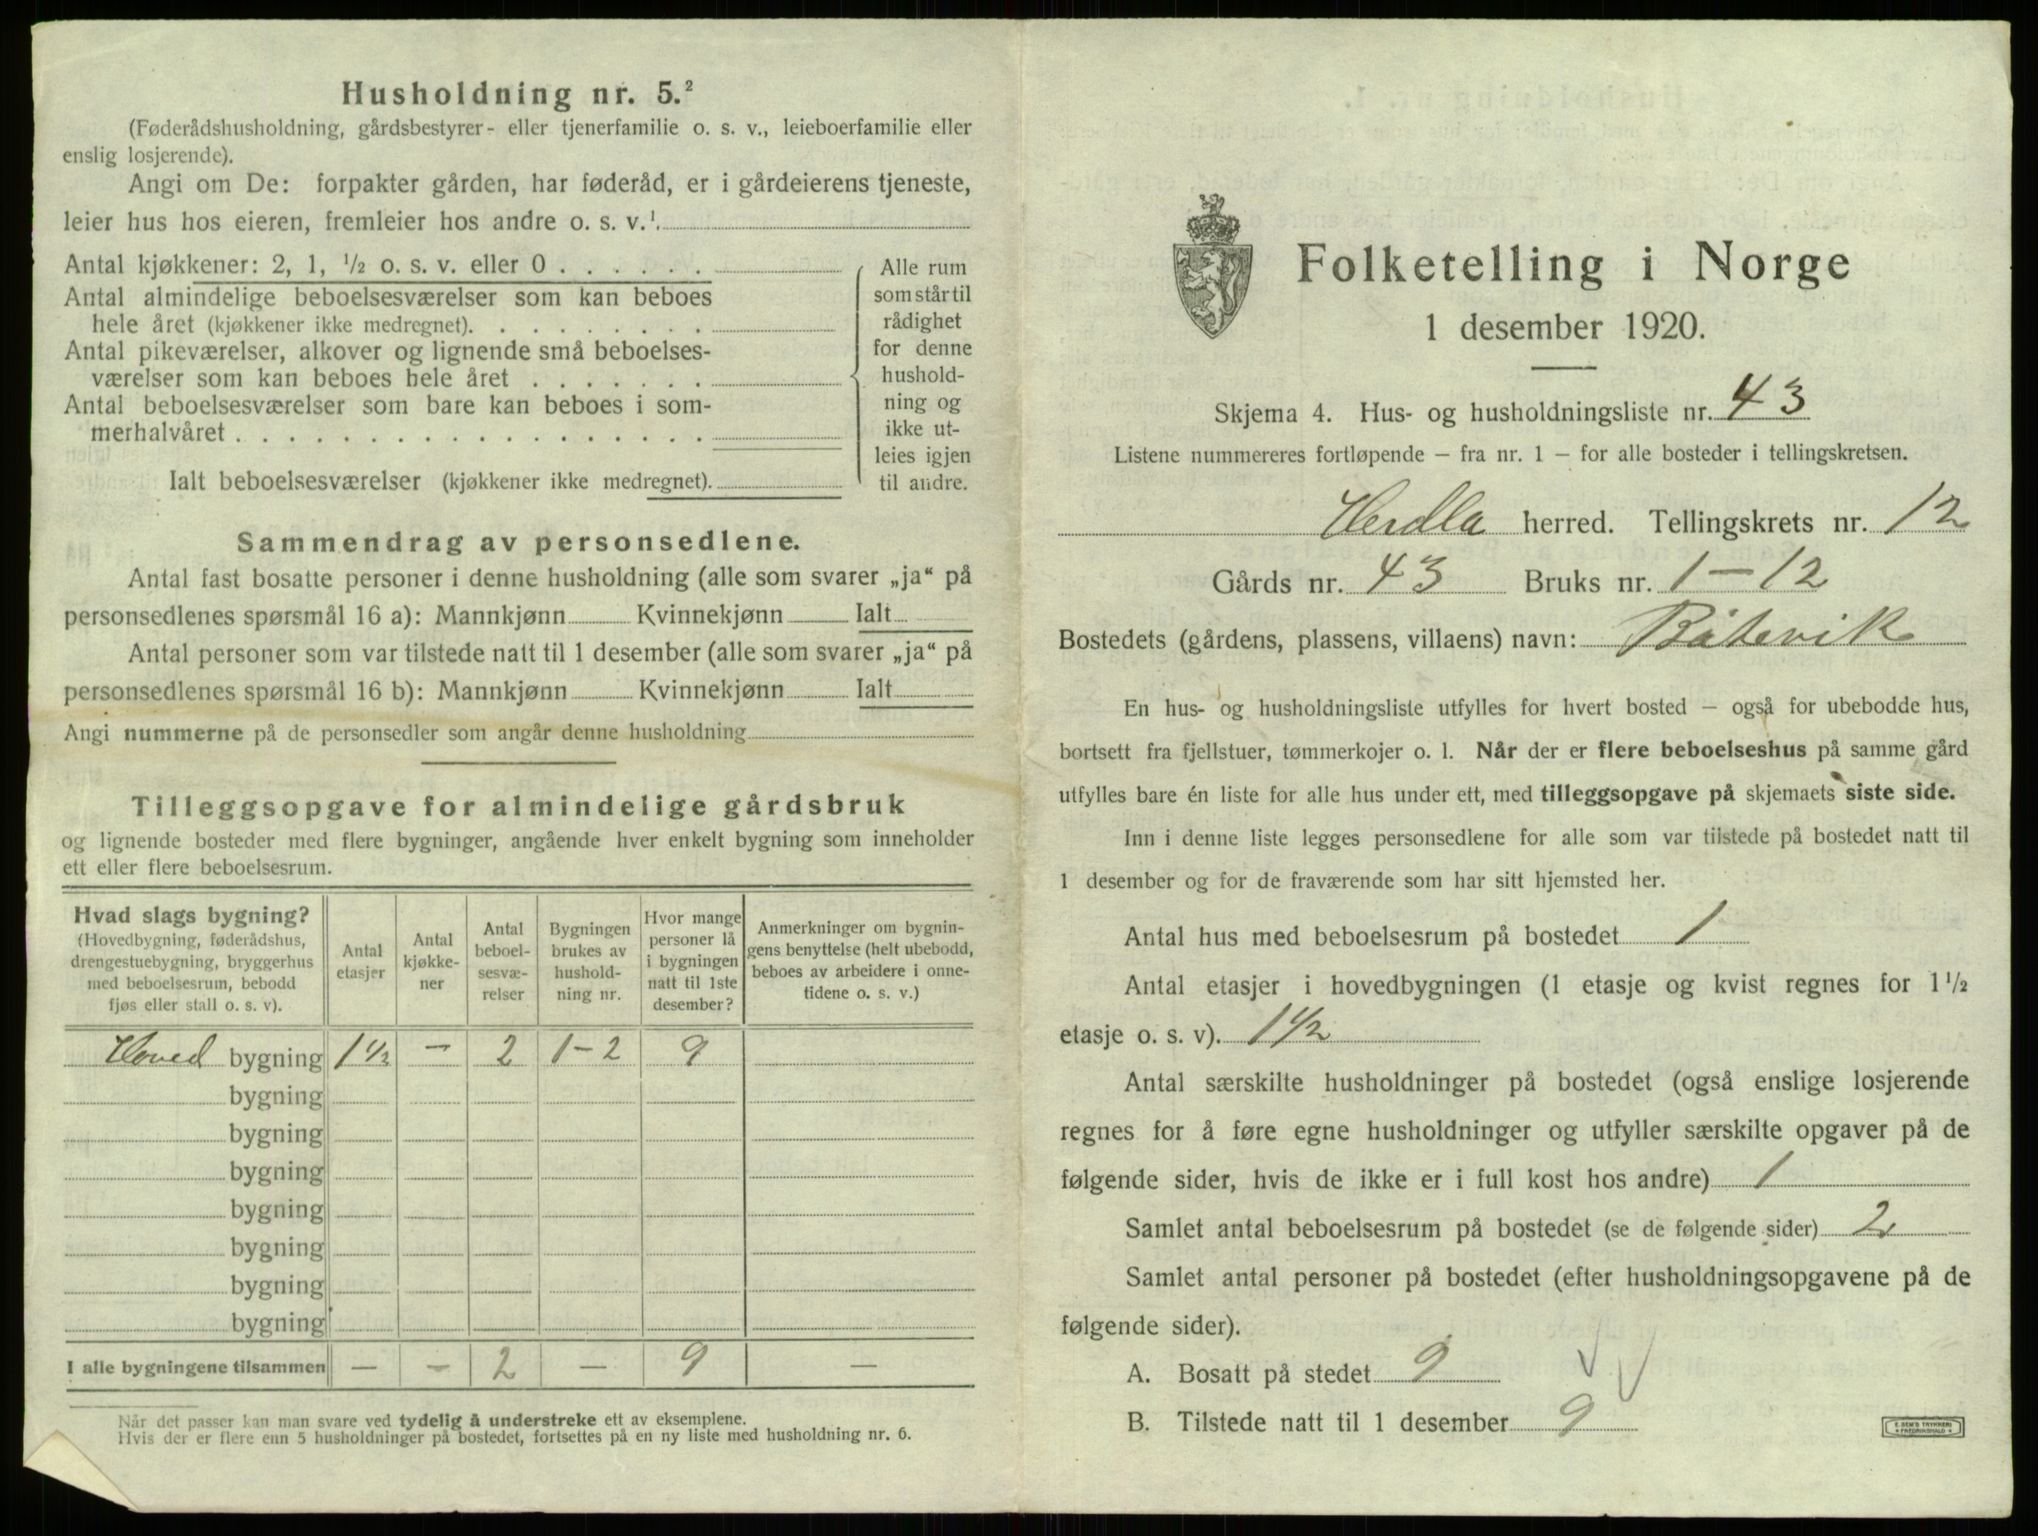 Husholdning nr. 5.²
(Føderådshusholdning, gårdsbestyrer- eller tjenerfamilie o. s. v., leieboerfamilie eller
enslig losjerende).
Angi om De: forpakter gården, har føderåd, er i gårdeierens tjeneste,
leier hus hos eieren, fremleier hos andre o. s. v.¹
Antal kjøkkener: 2, 1, ½ o. s. v. eller 0 . . . . . .
Antal almindelige beboelsesværelser som kan beboes
hele året (kjøkkener ikke medregnet). . . . . . . . .
Antal pikeværelser, alkover og lignende små beboelses-
værelser som kan beboes hele året . . . . . . .
Antal beboelsesværelser som bare kan beboes i som-
merhalvåret . . . . . . . . . . . . . . . . . .
Ialt beboelsesværelser (kjøkkener ikke medregnet).
Alle rum
som står til
rådighet
for denne
hushold-
ning og
ikke ut-
leies igjen
til andre.
Sammendrag av personsedlene.
Antal fast bosatte personer i denne husholdning (alle som svarer „ja“ på
personsedlenes spørsmål 16 a): Mannkjønn Kvinnekjønn Ialt
Antal personer som var tilstede natt til 1 desember (alle som svarer „ja“ på
personsedlenes spørsmål 16 b): Mannkjønn Kvinnekjønn Ialt
Angi nummerne på de personsedler som angår denne husholdning
Tilleggsopgave for almindelige gårdsbruk
og lignende bosteder med flere bygninger, angående hver enkelt bygning som inneholder
ett eller flere beboelsesrum.
Hvad slags bygning?
(Hovedbygning, føderådshus,
drengestuebygning, bryggerhus
med beboelsesrum, bebodd
fjøs eller stall o. s. v).
Antal
etasjer
Antal
kjøkke-
ner
Antal
beboel-
sesvæ-
relser
Bygningen
brukes av
hushold-
ning nr.
Hvor mange
personer lå
i bygningen
natt til 1ste
desember?
Anmerkninger om bygnin-
gens benyttelse (helt ubebodd,
beboes av arbeidere i onne-
tidene o. s. v.)
Hoved bygning 1½ – 2 1-2 9
bygning
bygning
bygning
bygning
bygning
bygning
bygning
I alle bygningene tilsammen — – 2 — 9 —
Når det passer kan man svare ved tydelig å understreke ett av eksemplene.
Hvis der er flere enn 5 husholdninger på bostedet, fortsettes på en ny liste med husholdning nr. 6.
Folketelling i Norge
1 desember 1920.
Skjema 4. Hus- og husholdningsliste nr. 43
Listene nummereres fortløpende – fra nr. 1 – for alle bosteder i tellingskretsen.
Herdla herred. Tellingskrets nr. 12
Gårds nr. 43 Bruks nr. 1-12
Bostedets (gårdens, plassens, villaens) navn: Båtevik
En hus- og husholdningsliste utfylles for hvert bosted – også for ubebodde hus,
bortsett fra fjellstuer, tømmerkojer o. l. Når der er flere beboelseshus på samme gård
utfylles bare én liste for alle hus under ett, med tilleggsopgave på skjemaets siste side.
Inn i denne liste legges personsedlene for alle som var tilstede på bostedet natt til
1 desember og for de fraværende som har sitt hjemsted her.
Antal hus med beboelsesrum på bostedet 1
Antal etasjer i hovedbygningen (1 etasje og kvist regnes for 1½
etasje o. s. v). 1½
Antal særskilte husholdninger på bostedet (også enslige losjerende
regnes for å føre egne husholdninger og utfyller særskilte opgaver på de
følgende sider, hvis de ikke er i full kost hos andre) 1
Samlet antal beboelsesrum på bostedet (se de følgende sider) 2
Samlet antal personer på bostedet (efter husholdningsopgavene på de
følgende sider).
A. Bosatt på stedet 9
B. Tilstede natt til 1 desember 9
E. SEM'S TRYKKERI
FREDRIKSHALD